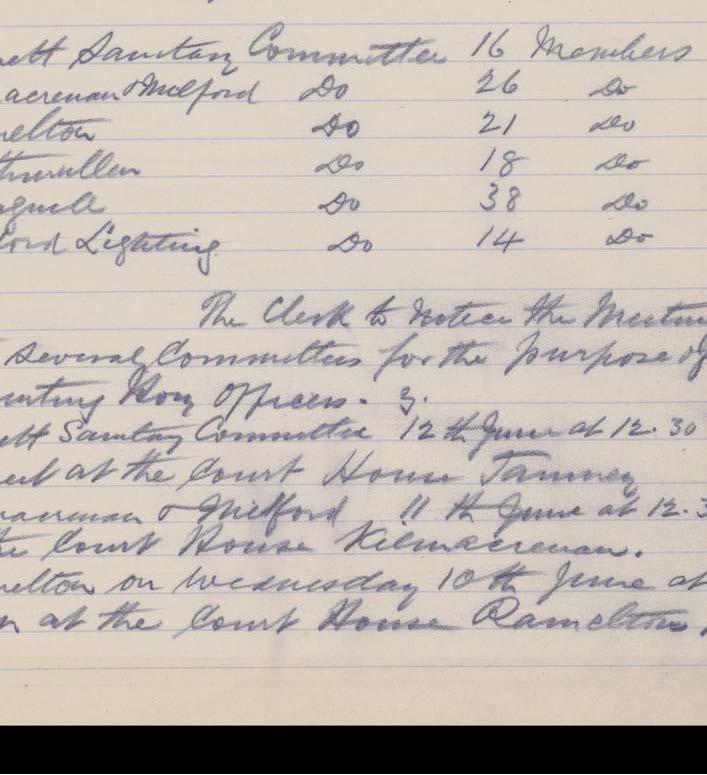 ett Sanitary Committee 16 Members
acrenan & Milford Do 26 Do
melton Do 21 Do
thmullen Do 18 Do
Do 38 Do
ford Lighting Do 14 Do
The Clerk to notice the Meeting
several Committees for the purpose of
inting Hony Officers.
ett Sanitary Committee 12th June at 12.30
eet at the Court House Tamney
macrenan & Milford 11th June at 12.3
the Court House Kilmacrenan.
melton on Wednesday 10th June at
n at the Court House Ramelton,